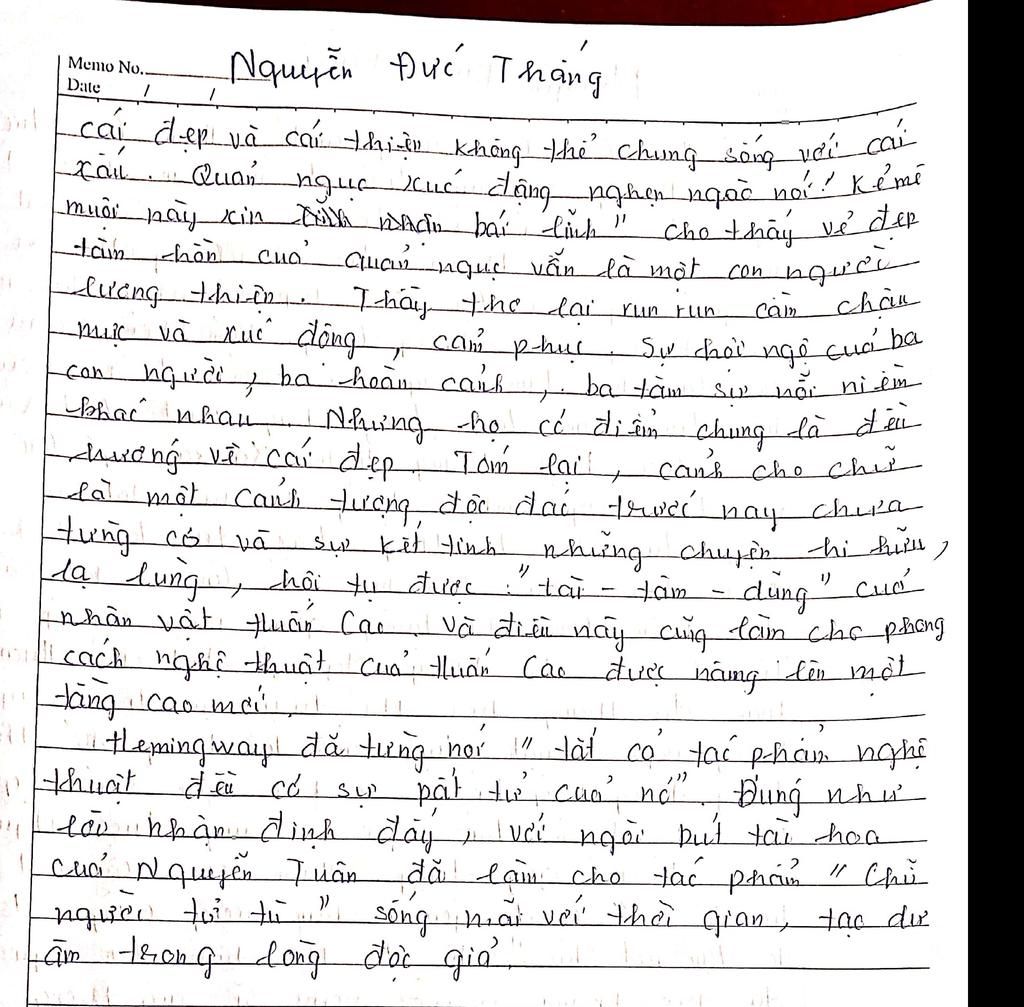 Nguyễn Đức Thắng
Memo No.
Date / /
cái đẹp và cái thiện không thể chung sống với cái
xấu. Quản ngục xúc động nghẹn ngào nói! Kẻ mê
muội này xin bái lĩnh" cho thấy vẻ đẹp
tâm hồn cuả quản ngục vẫn là một con người
lương thiện. Thầy thơ lại run run cầm chậu
mực và xúc động, cảm phục. Sự hội ngộ cuả ba
con người, ba hoàn cảnh, ba tâm sự nỗi niềm
khác nhau. Nhưng họ có điểm chung là đều
hướng về cái đẹp. Tóm lại, cảnh cho chữ
là một cảnh tượng độc đáo trước nay chưa
từng có và sự kết tinh những chuyện hi hữu,
lạ lùng, hội tụ được "tài - tâm - dũng" cuả
nhân vật Huấn Cao. Và điều này cũng làm cho phong
cách nghệ thuật cuả Huấn Cao được nâng lên một
tầng cao mới.
Hemingway đã từng nói "tất cả tác phẩm nghệ
thuật đều có sự pất tử cuả nó". Đúng như
lời nhận định đấy, với ngòi bút tài hoa
cuả Nguyễn Tuân đã làm cho tác phẩm "Chữ
người tử tù" sống mãi với thời gian, tạo dư
âm trong lòng độc giả.